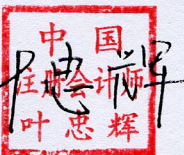 中国
注册会计师
叶忠辉
忠辉